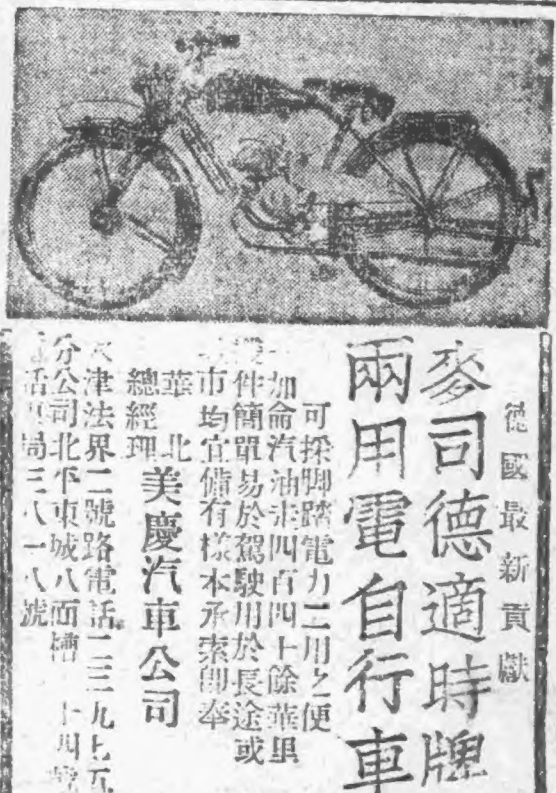 德國最新貢獻
麥司德適時牌
兩用電自行車
可採脚踏電力二用之便
加侖汽油走四百四十餘華里
件簡單易於駕駛用於長途或
市均宜備有樣本承索卽奉
華北
總經理
美慶汽車公司
津法界二號路電話二三九七五
分公司北平東城八面槽 十四號
話東局三八一八號